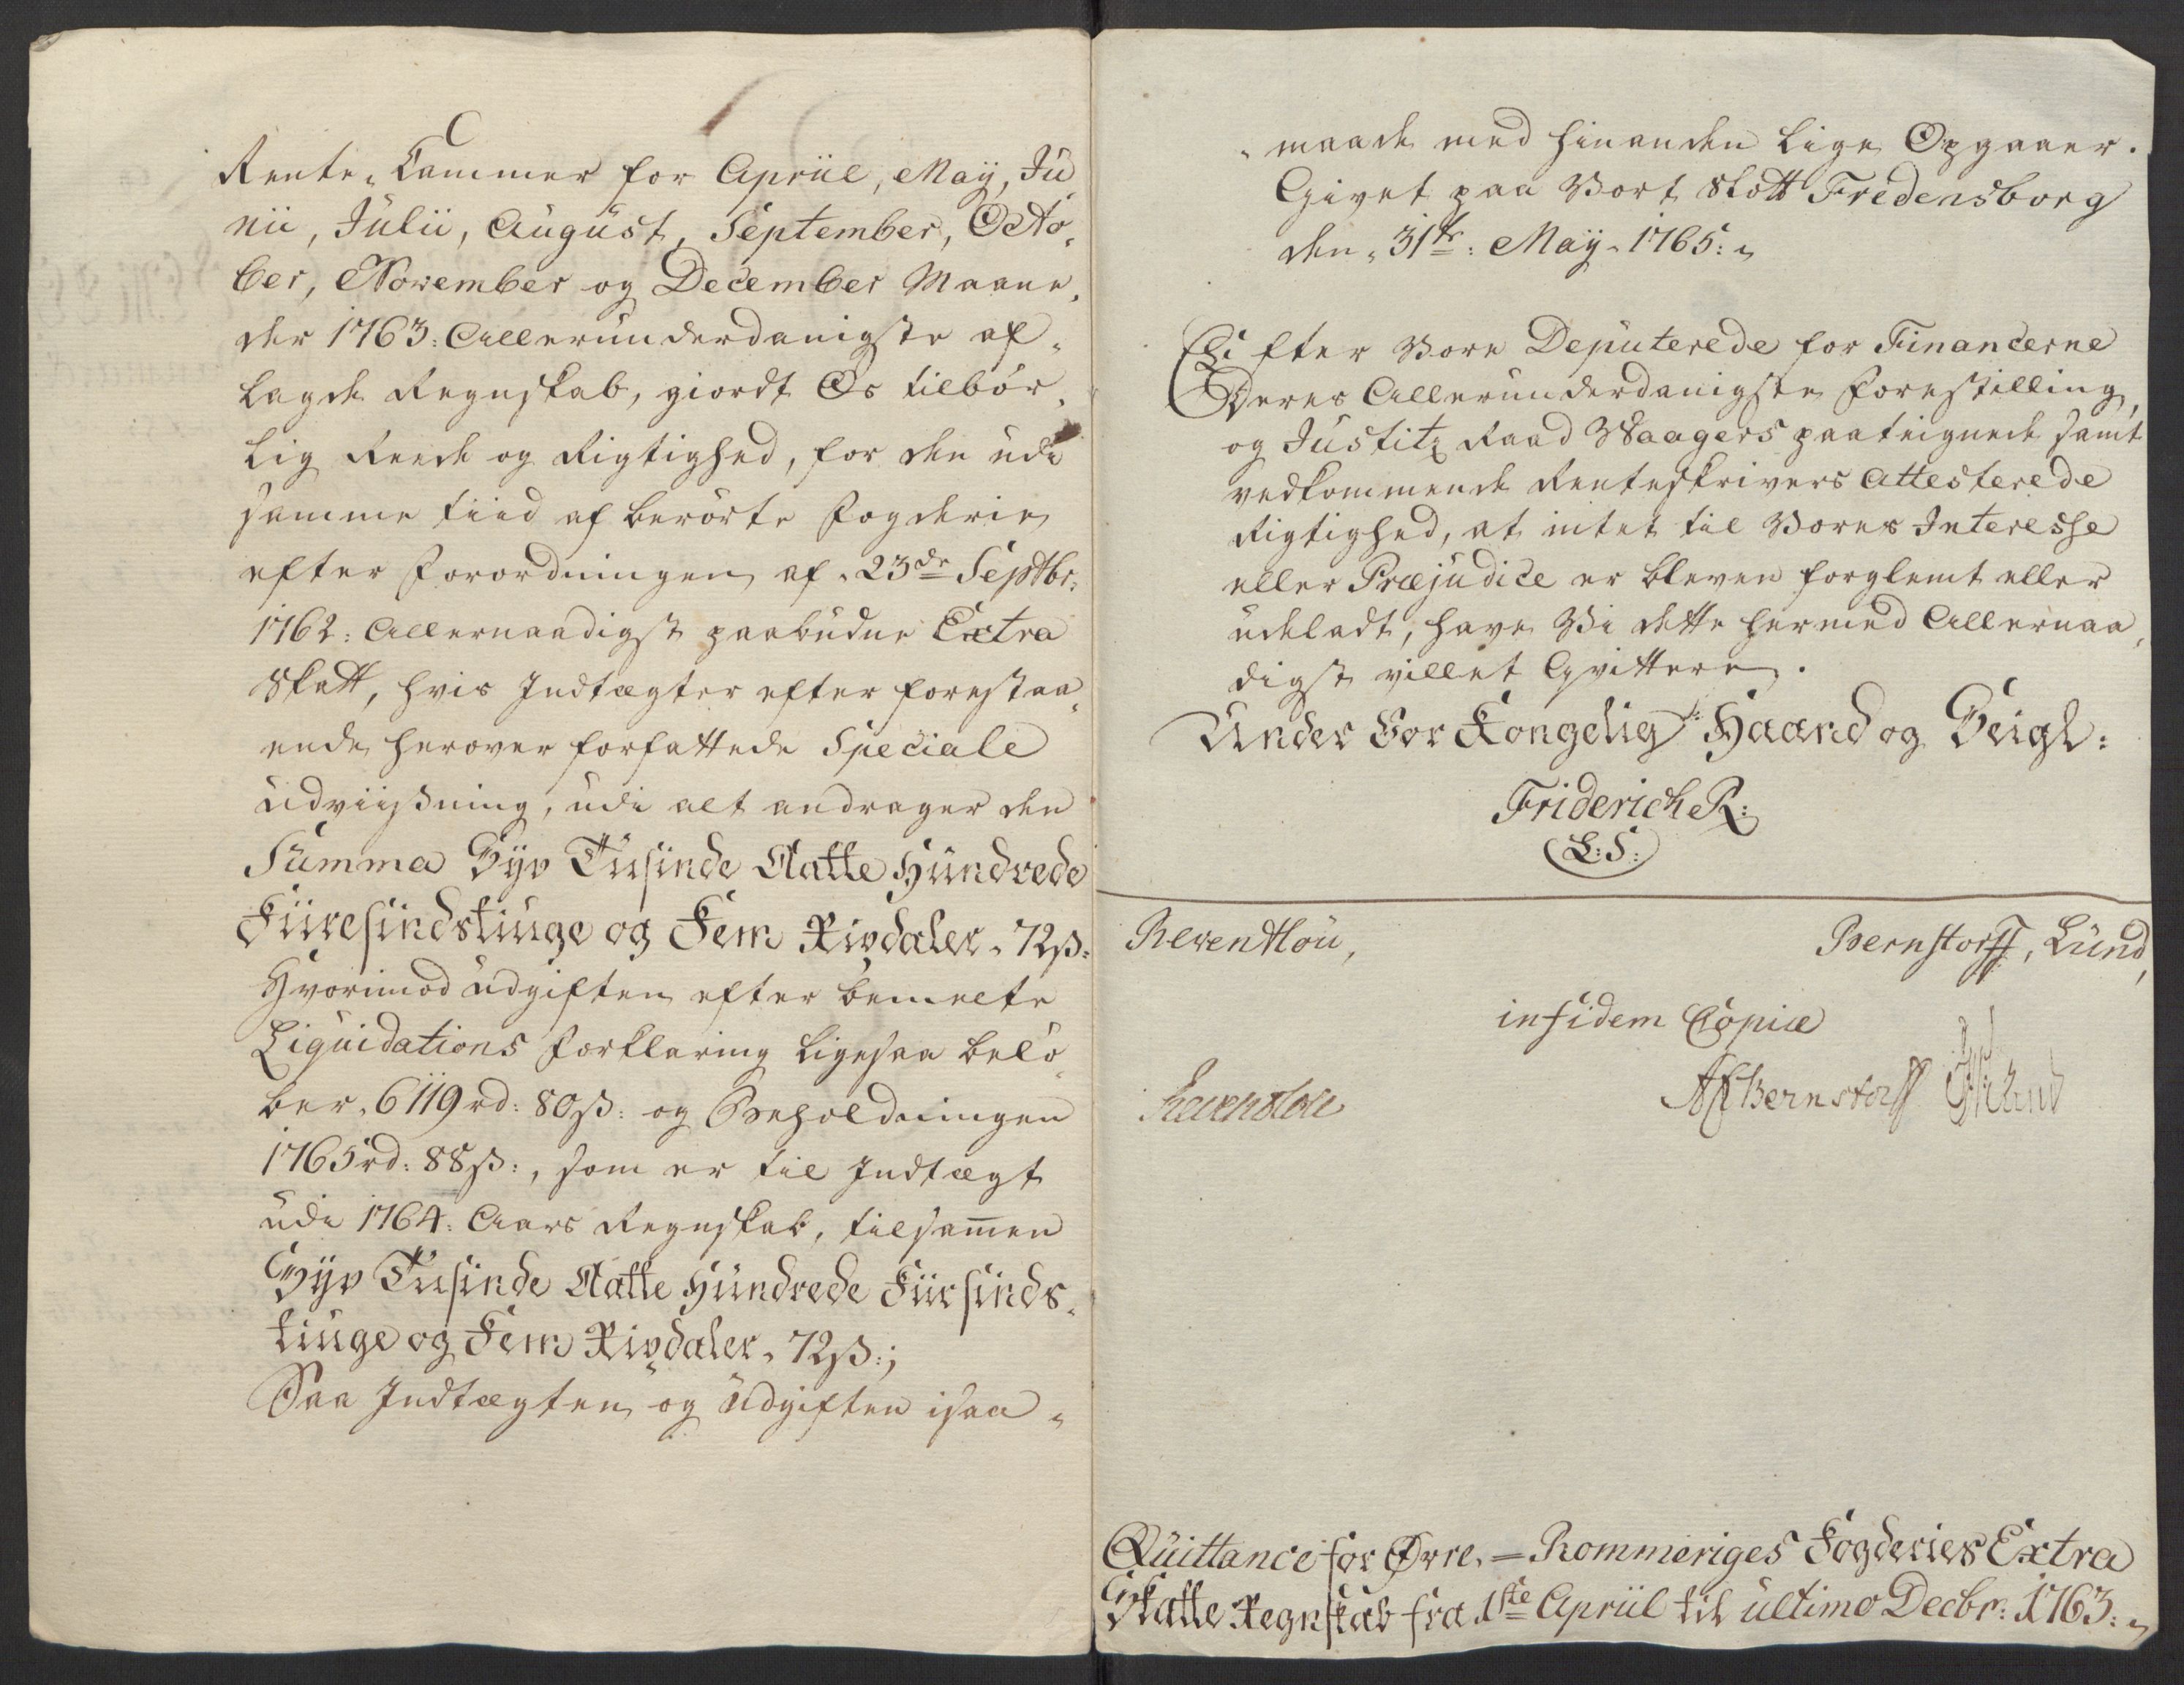 Rente-Cammer for Apriil, Maÿ, Ju-
nii, Julii, August, September, Octo-
ber, November og December Maane-
der 1763: Allerunderdanigste af-
lagde Regnskab, giordt Os tilbør-
lig Reede og Rigtighed, for den udi
samme tiid af berørte Fogderie
efter Forordningen af 23de Septbr:
1762: Allernaadigst paabudne Extra
Skatt, hvis Indtægter efter forestaa-
ende herover forfattede Speciale
Udviisning, udi alt andrager den
Summa Syv Tusinde Aatte Hundrede
Fiiresindstiuge og Fem Rixdaler 72 ß:
Hvorimod Udgiften efter bemelte
Liquidations Forklaring ligesaa belø-
ber 6119 rd: 80 ß: og Beholdningen
1765 rd: 88 ß:, som er til Indtægt
udi 1764: Aars Regnskab, tilsammen
Syv Tusinde Aatte Hundrede Fiirsinds-
tiuge og Fem Rixdaler 72 ß:;
Saa Indtægten og Udgiften isaa-
maade med hinanden lige Opgaaer.
Givet paa Vort Slott Fredensborg
den 31te: Maÿ 1765:
Efter Vore Deputerede for Financerne
Deres Allerunderdanigste Forestilling,
og Justitz Raad Waagers paateignede samt
vedkommende Renteskrivers Attesterede
Rigtighed, at intet til Vores Interesse
eller Præjudice er bleven forglemt eller
udeladt, have Vi dette hermed Allernaa-
digst villet Qvittere.
Under Vor Kongelig: Haand og Seigl:
Friderich R:
(L:S:)
Reventlou,
Bernstorff, Lund,
in fidem Copiæ
Reventlou
AP Bernstorff Lund
Quittance for Øvre-Rommeriges Fogderies Extra
Skatte Regnskab fra 1ste Apriil til ultimo Decbr: 1763: